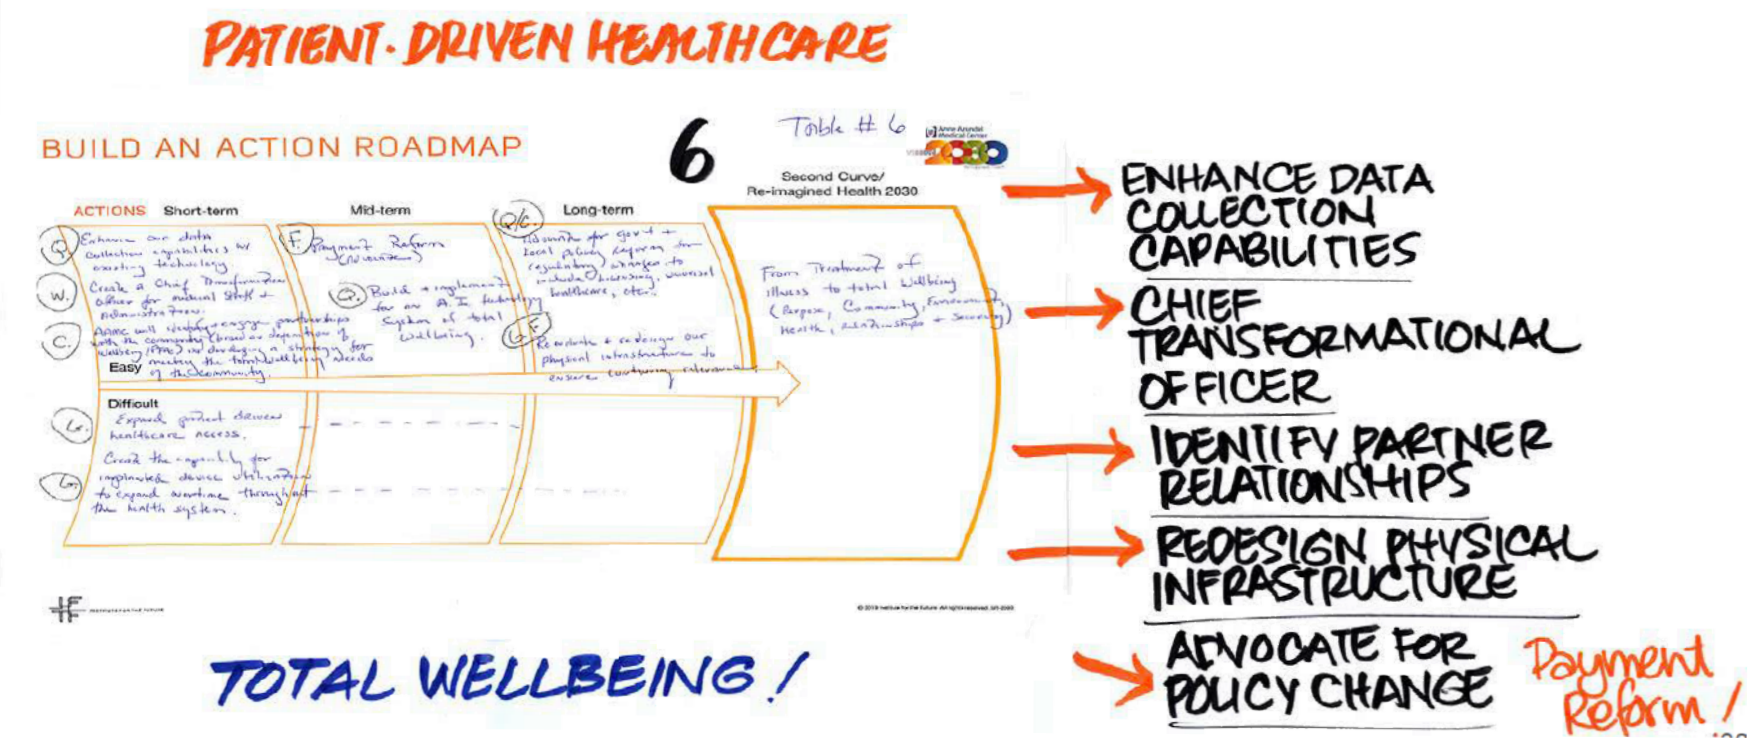 PATIENT. DRIVEN HEALTHCARE
BUILD AN ACTION ROADMAP
6
Table # 6
Anne Arundel
Medical Center
2030
Second Curve/
Re-imagined Health 2030
ACTIONS Short-term
Mid-term
Long-term
Q.
Enhance our data
collection capabilities w/
existing technology
W.
Create a Chief Transformation
officer for medical staff +
Administration.
C.
AAMC will identify + engage partnerships
with the community (based on definition of
wellbeing) in developing a strategy for
meeting the total wellbeing needs
of the community.
Easy
F.
Payment Reform
(Advocate)
Q.
Build + implement
for an A.I. technology
system of total
wellbeing.
Q/C.
Advocate for gov't +
local policy reform for
regulatory changes to
include licensing, universal
healthcare, etc.
Re-evaluate + redesign our
physical infrastructure to
ensure continuing relevance
From Treatment of
illness to total Wellbeing
(Purpose, Community, Environment,
Health, Relationships + Security)
Difficult
G.
Expand patient driven
healthcare access.
G.
Create the capability for
implanted device utilization
to expand overtime throughout
the health system.
INSTITUTE FOR THE FUTURE
Institute for the Future. All rights reserved.
ENHANCE DATA
COLLECTION
CAPABILITIES
CHIEF
TRANSFORMATIONAL
OFFICER
IDENTIFY PARTNER
RELATIONSHIPS
REDESIGN PHYSICAL
INFRASTRUCTURE
ADVOCATE FOR
POLICY CHANGE
Payment
Reform!
TOTAL WELLBEING!